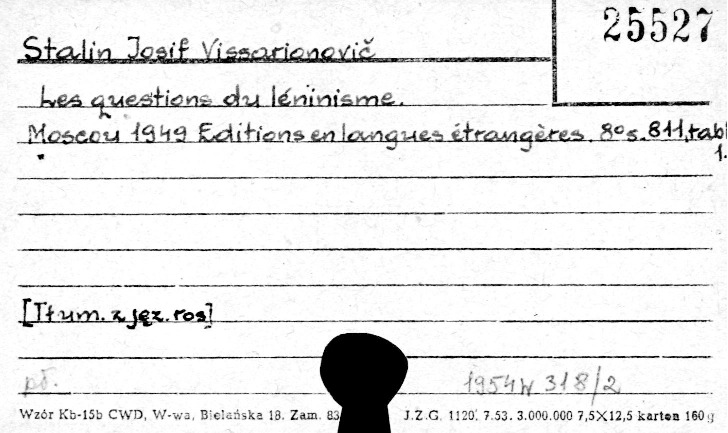 25527
Stalin Josif Vissarionovič
Les questions du léninisme.
Moscou 1949 Editions en langues étrangères. 8o s. 811, tabl
1.
[Tłum. z jęz. ros]
pł.
1954 W 318/2
Wzór Kb-15b CWD, W-wa, Bielańska 18. Zam. 83 J.Z.G. 1120. 7.53. 3.000.000 7,5×12,5 karton 160 g